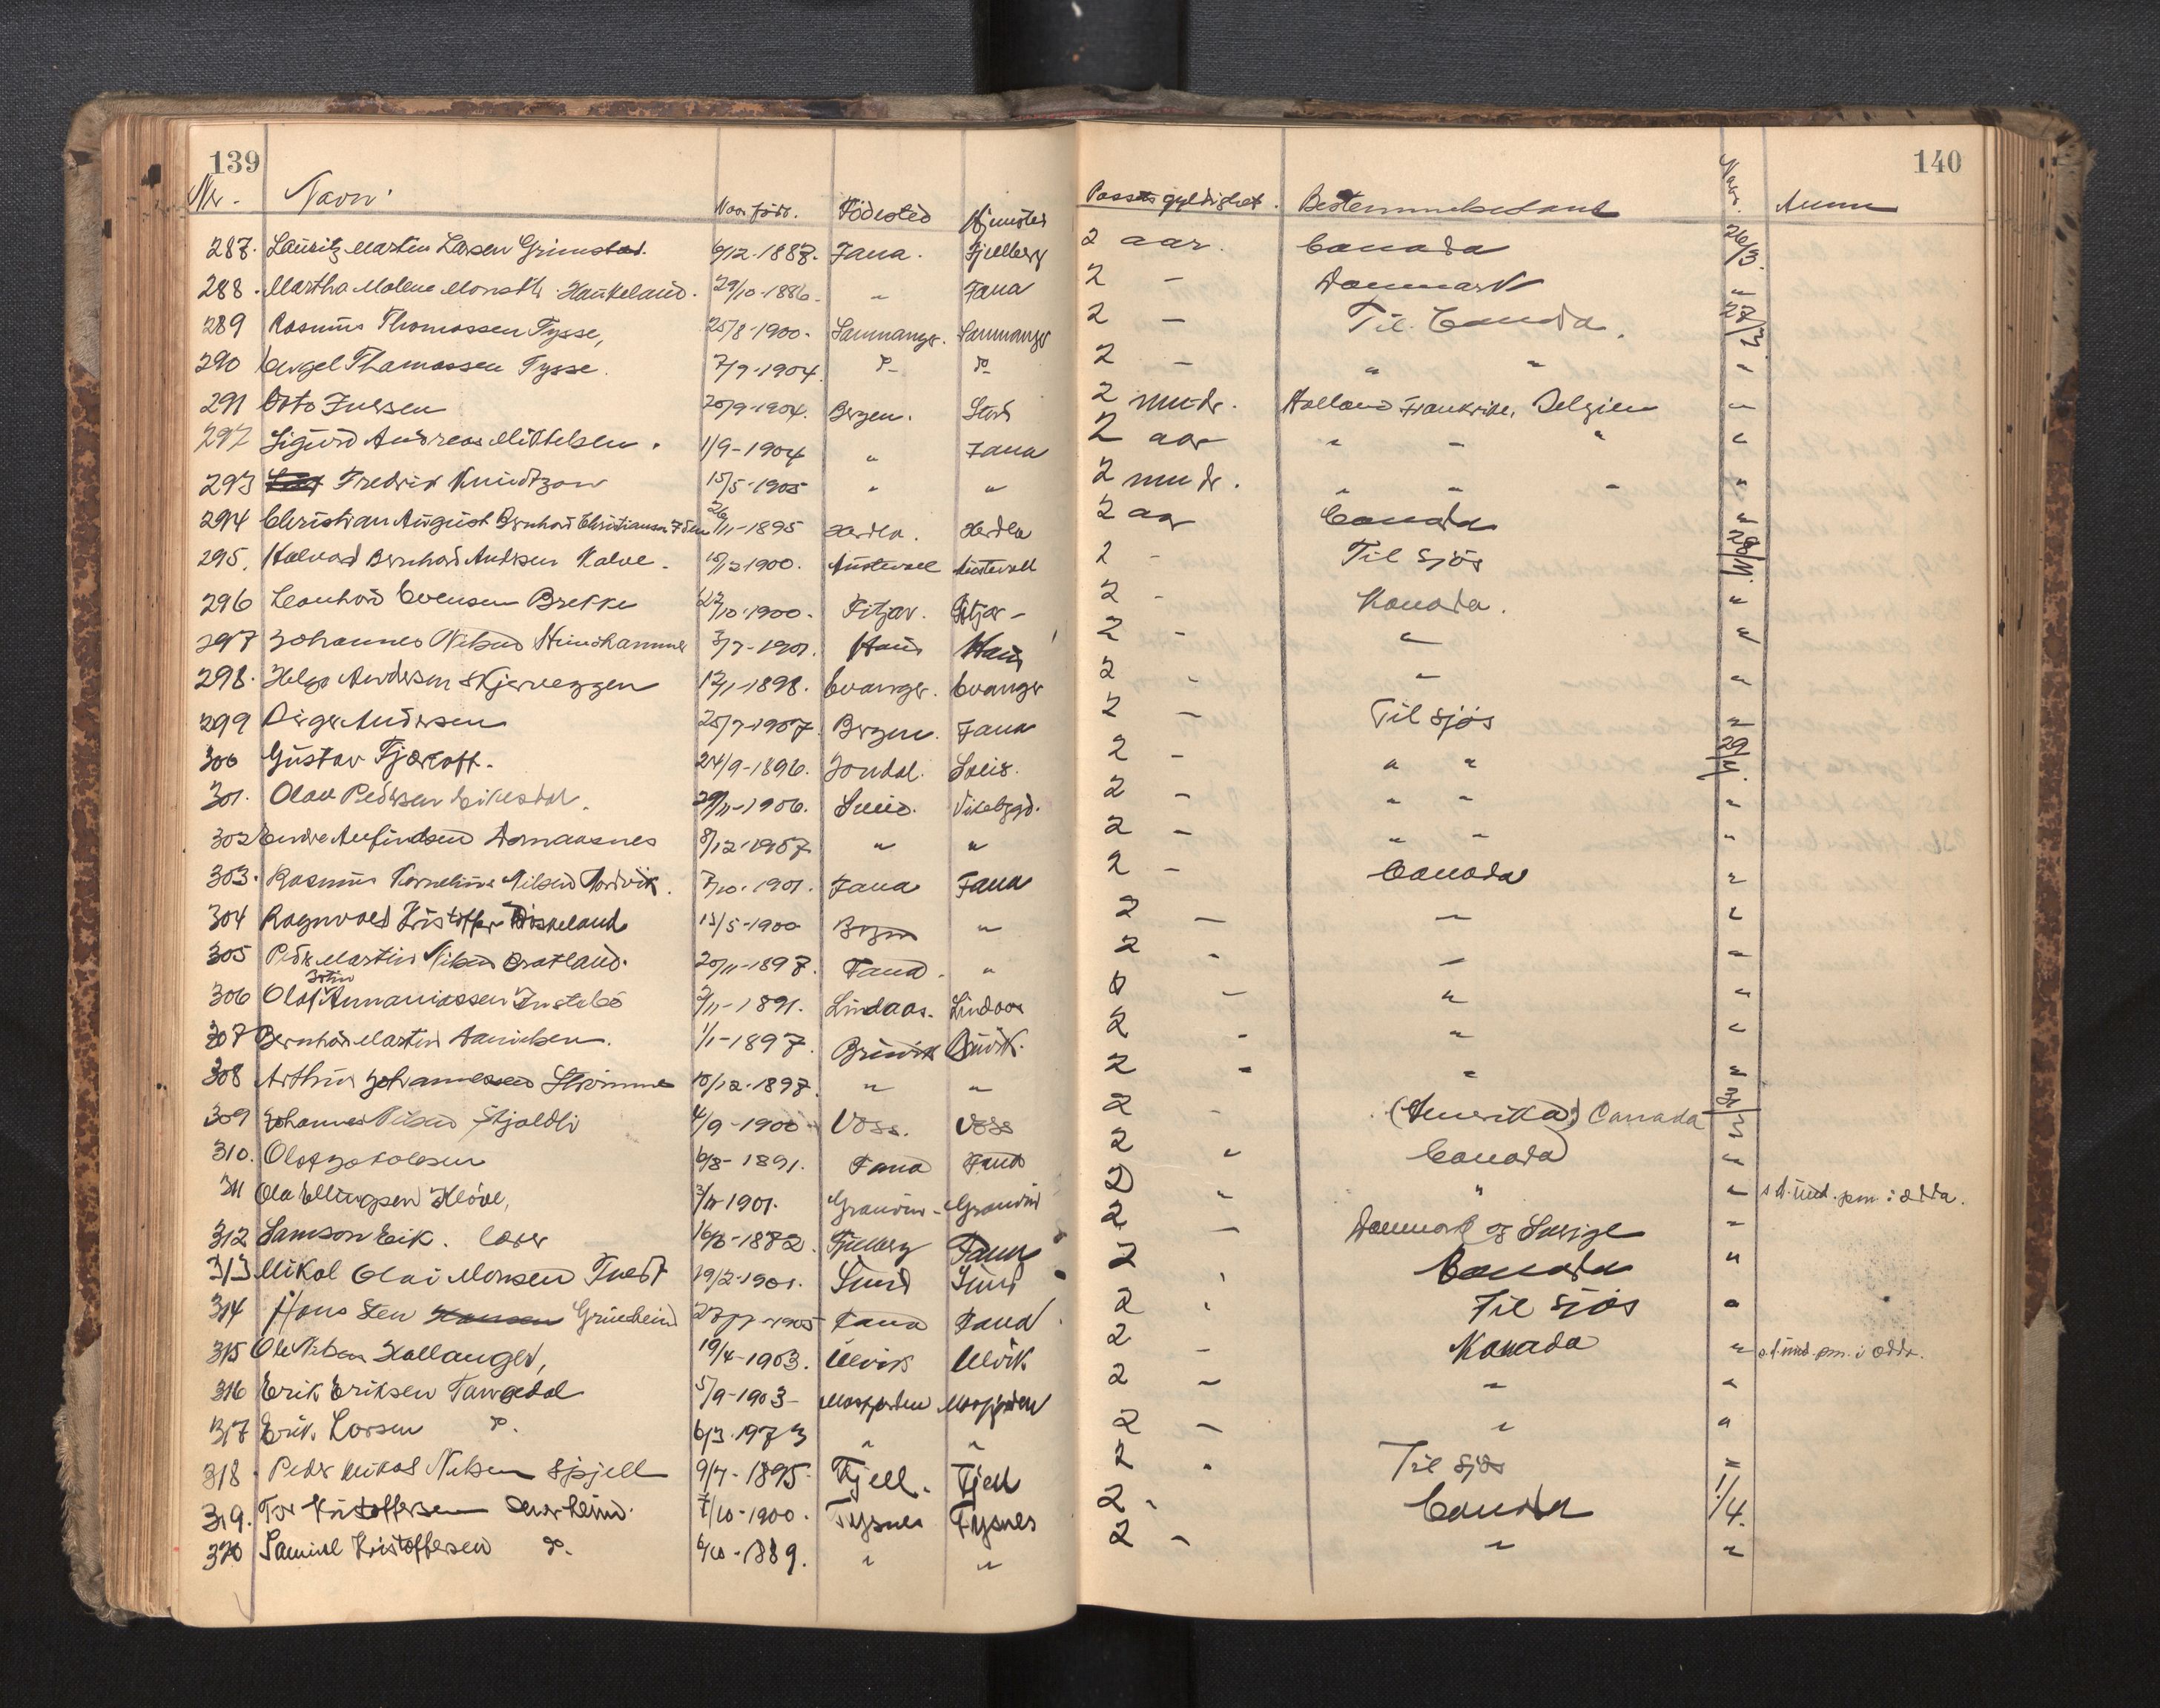 139
140
Nr. Navn. Naar född. Födested Hjemsted Passets gyldighet. Bestemmelsesland Naar. Anm
287. Lauritz Martin Larsen Grimstad. 6/12-1887. Fana. Fjellberg 2 aar. Canada 26/3.
288. Martha Malene Monsdtr Haukeland. 29/10-1886. " Fana 2 - Danmark "
289 Rasmus Thomassen Tysse, 25/8-1900. Samnanger. Samnanger 2 - Til Canada. 27/3.
290 Engel Thomassen Tysse. 7/9-1904. do do 2 - " " "
291 Otto Iversen 20/9-1904. Bergen. Stord 2 mndr. Holland Frankrike, Belgien "
292 Sigurd Andreas Mikkelsen. 1/9-1904 " Fana 2 aar " - " "
293 Fredrik Knudtzon 15/5-1905 " " 2 mndr. " " " "
294 Christian August Bernhard Christiansen 26/11-1895 Herdla. Herdla 2 aar Canada "
295. Halvard Bernhard Andersen Kalve. 10/12 1900. Austevoll Austevoll 2 - Til sjös 28/3.
296 Leonhard Evensen Brekke 27/10-1900. Fitjar. Fitjar - 2 - Kanada. "
297 Johannes Nilsen Steinshammer 3/7-1901. Haus Haus 2 - " "
298. Helge Andersen Skjerveggen 12/1-1898. Evanger. Evanger 2 - " "
299 Birger Andersen 25/7-1907 Bergen. Fana 2 - Til sjös "
300 Gustav Fjærtoft. 24/9-1896. Jondal. 2 - " " 29/3.
301. Olav Pedersen Eikestad. 29/11-1906. Sund. Vikebygd. 2 - " " "
302 Endre Anfindsen 8/12-1907 " " 2 - " " "
303. Rasmus Kornelius Nilsen Nordvik. 7/10-1901. Fana Fana 2 - Canada "
304 Ragnvald Kristoffer 15/5-1900 Bergen " 2 - - "
305 Peder Martin Nilsen Bratland. 20/11-1897. Fana. " 2 - - "
306 Olaf Johan Annaniassen Instebö 2/11-1891. Lindaas. Lindaas 2 - " "
307 Bernhard Martin Danielsen. 1/1-1897. Bruvik Bruvik. 2 - " "
308 Arthur Johannessen Strömme 10/12-1897. " " 2 - " "
309 Johannes Nilsen Skjeldli 4/9-1900 Voss. Voss 2 - (Amerika) Canada 31/3
310. Olaf Jakobsen 6/8-1891. Fana Fana 2 " Canada "
311 Ola Ellingsen Kløve, 3/11-1901. Granvin - Granvin 2 " " " s.d. und. pm. i Odda.
312 Samson Eik. 16/8-1882. Fjelberg Fana 2 - Danmark og Sverige "
313 Mikal Olai Monsen Tveit 19/2-1901. Sund Sund 2 ' Canada "
314 Hans Sten Grüeheim 1905 Fana Fana 2 ' Til sjös "
315 Ole Nilsen Hallanger, 19/4-1903. Ulvik Ulvik 2 - Kanada " s.d. und. pm. i Odda.
316 Erik Eriksen Tangedal 5/9-1903 - Masfjorden Masfjorden 2 - " "
317 Erik Larsen do. 6/3. " " 2 - " "
318. Peder Mikal Nilsen Spjell 9/7-1895. Fjell. Fjell 2 . Til sjös "
319. Tor Kristoffersen 7/10-1900. Tysnes Tysnes 2 - Canada 1/4.
320 Samuel Kristoffersen do. 6/10-1889. " " 2 - " "